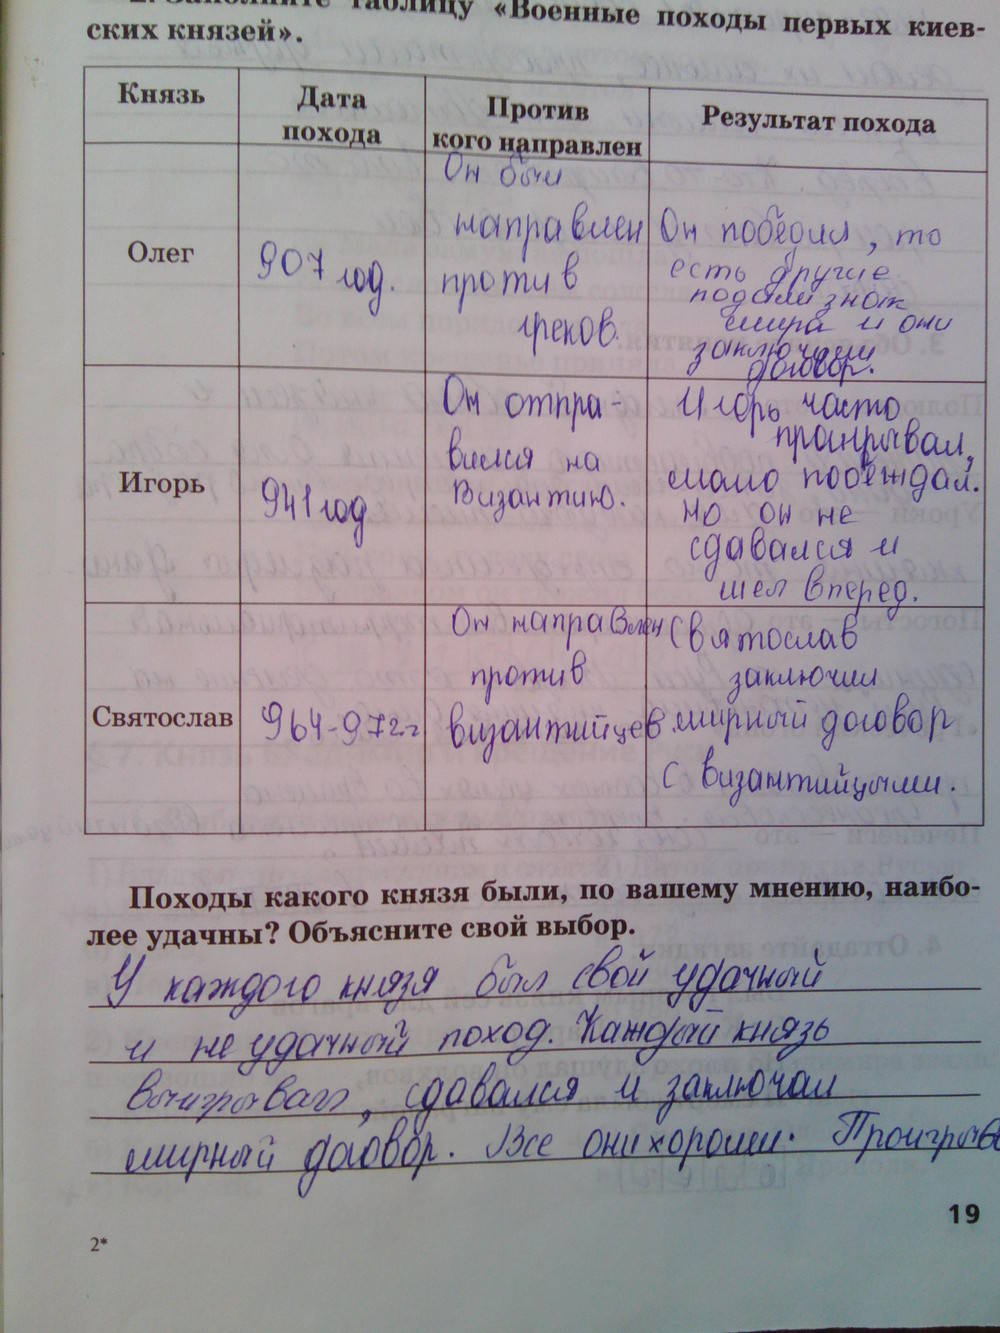 2. Заполните таблицу «Военные походы первых киев-
ских князей».
Князь
Дата
похода
Против
кого направлен
Результат похода
Олег
907 год.
Он был
направлен
против
греков.
Он победил, то
есть другие
подали знак
мира и они
заключили
договор.
Игорь
941 год
Он отпра-
вился на
Византию.
Игорь часто
проигрывал,
мало побеждал.
Но он не
сдавался и
шел вперед.
Святослав
964-972гг
Он направлен
против
византийцев.
Святослав
заключил
мирный договор
с византийцыми.
Походы какого князя были, по вашему мнению, наибо-
лее удачны? Объясните свой выбор.
У каждого князя был свой удачный
и не удачный поход. Каждый князь
выигрывал, сдавался и заключал
мирный договор. Все они хороши. Проигрыва
19
2*